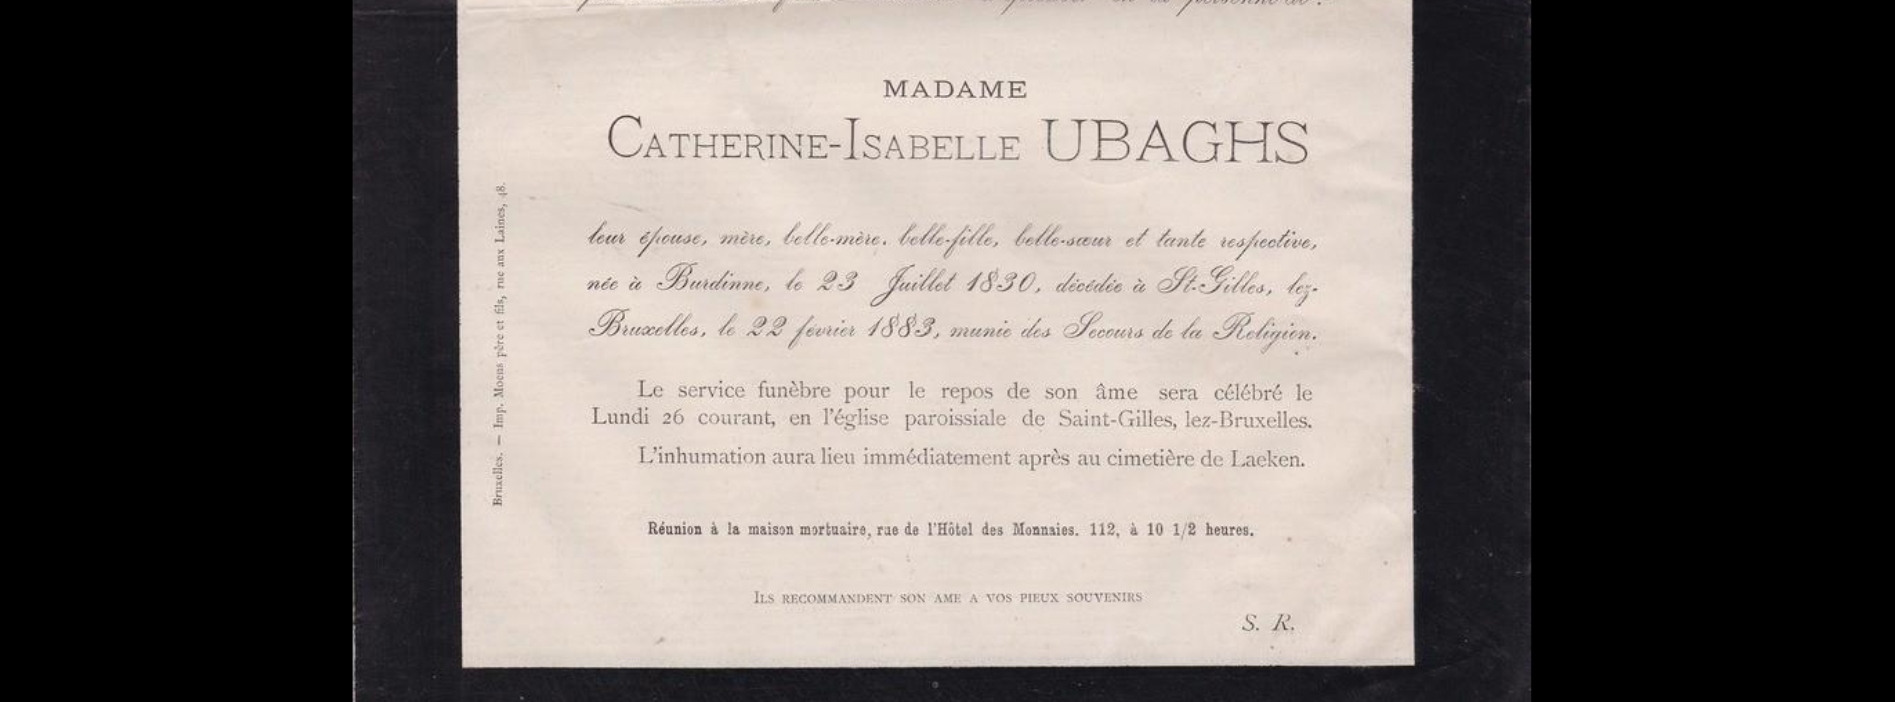 en la personne de :
MADAME
CATHERINE-ISABELLE UBAGHS
leur épouse, mère, belle-mère, belle-fille, belle-sœur et tante respective,
née à Burdinne, le 23 Juillet 1830, décédée à St-Gilles, lez-
Bruxelles, le 22 février 1883, munie des Secours de la Religion.
Le service funèbre pour le repos de son âme sera célébré le
Lundi 26 courant, en l'église paroissiale de Saint-Gilles, lez-Bruxelles.
L'inhumation aura lieu immédiatement après au cimetière de Laeken.
Réunion à la maison mortuaire, rue de l'Hôtel des Monnaies, 112, à 10 1/2 heures.
ILS RECOMMANDENT SON AME A VOS PIEUX SOUVENIRS
S. R.
Bruxelles. — Imp. Moens père et fils, rue aux Laines, 48.